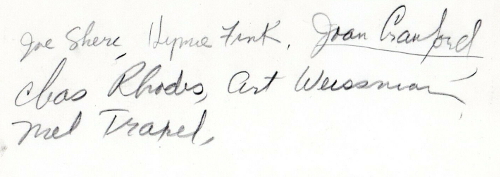 Joe Shere, Hymie Fink, Joan Crawford
Chas Rhodes, Art Weissman,
Mel Traxel,